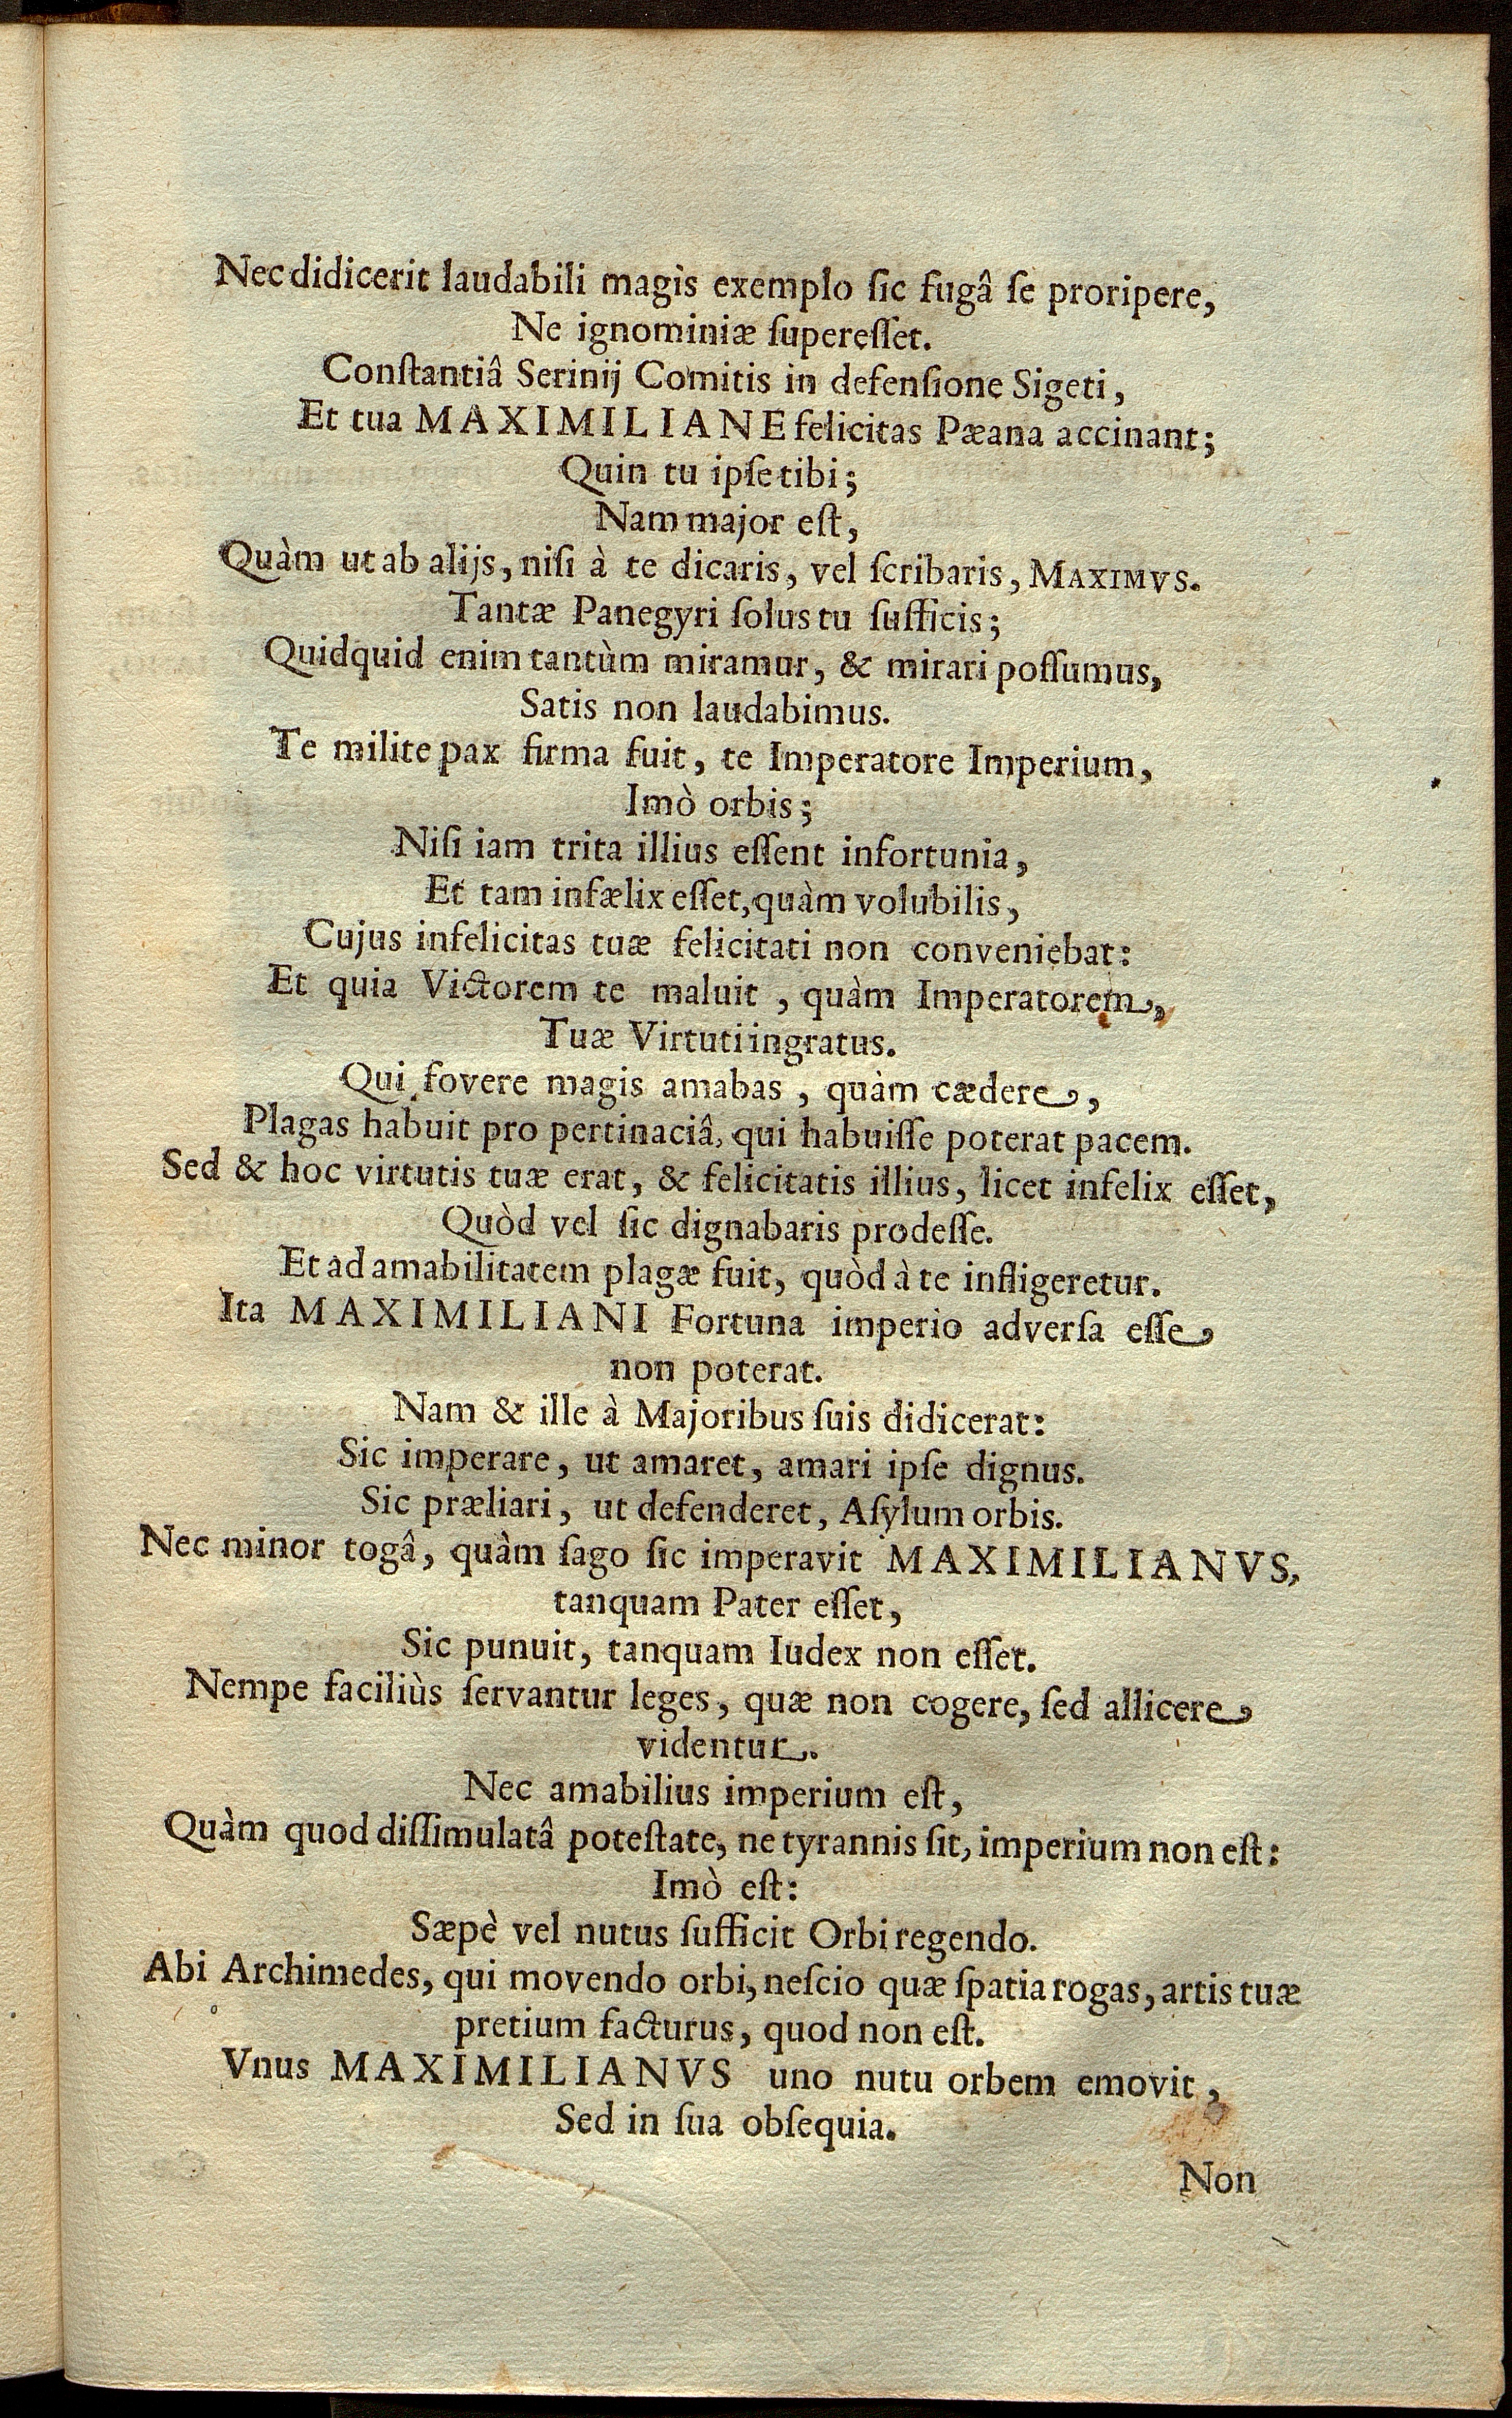 Nec didicerit laudabili magis exemplo ſic fugâ ſe proripere,
Ne ignominiæ ſupereſſet.
Conſtantiâ Serinij Comitis in defenſione Sigeti,
Et tua MAXIMILIANE felicitas Pæana accinant;
Quin tu ipſe tibi;
Nam major eſt,
Quàm ut ab alijs, niſi à te dicaris, vel ſcribaris, MAXIMVS.
Tantæ Panegyri ſolus tu ſufficis;
Quidquid enim tantùm miramur, & mirari poſſumus,
Satis non laudabimus.
Te milite pax firma fuit, te Imperatore Imperium,
Imò orbis;
Niſi iam trita illius eſſent infortunia,
Et tam infælix eſſet, quàm volubilis,
Cujus infelicitas tuæ felicitati non conveniebat:
Et quia Victorem te maluit, quàm Imperatorem,
Tuæ Virtuti ingratus.
Qui fovere magis amabas, quàm cædere,
Plagas habuit pro pertinaciâ, qui habuiſſe poterat pacem.
Sed & hoc virtutis tuæ erat, & felicitatis illius, licet infelix eſſet,
Quòd vel ſic dignabaris prodeſſe.
Et ad amabilitatem plagæ fuit, quòd à te infligeretur.
Ita MAXIMILIANI Fortuna imperio adverſa eſſe
non poterat.
Nam & ille à Majoribus ſuis didicerat:
Sic imperare, ut amaret, amari ipſe dignus.
Sic præliari, ut defenderet, Aſylum orbis.
Nec minor togâ, quàm ſago ſic imperavit MAXIMILIANVS,
tanquam Pater eſſet,
Sic punuit, tanquam Iudex non eſſet.
Nempe faciliùs ſervantur leges, quæ non cogere, ſed allicere
videntur.
Nec amabilius imperium eſt,
Quàm quod diſſimulatâ poteſtate, ne tyrannis ſit, imperium non eſt:
Imò eſt:
Sæpè vel nutus ſufficit Orbi regendo.
Abi Archimedes, qui movendo orbi, neſcio quæ ſpatia rogas, artis tuæ
pretium facturus, quod non eſt.
Vnus MAXIMILIANVS uno nutu orbem emovit,
Sed in ſua obſequia.
Non